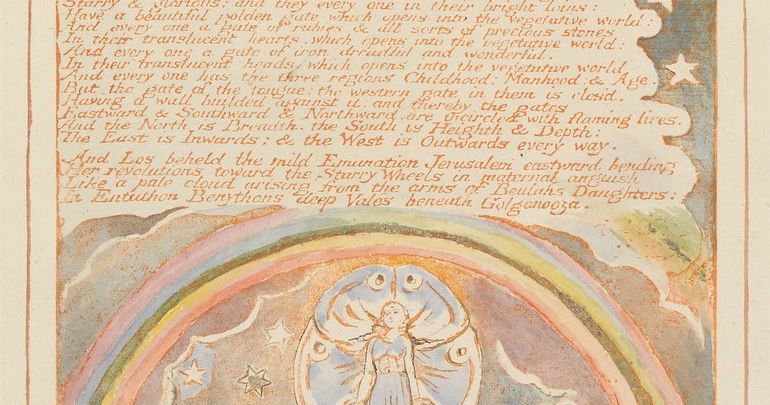 Starry & glorious: and they every one in their bright loins:
Have a beautiful golden gate which opens into the vegetative world:
And every one a gate of rubies & all sorts of precious stones
In their translucent hearts which opens into the vegetative world:
And every one a gate of iron dreadful and wonderful.
In their translucent heads which opens into the vegetative world
And every one has the three regions Childhood: Manhood: & Age:
But the gate of the tongue: the western gate in them is clos'd.
Having a wall builded against it: and thereby the gates
Eastward & Southward & Northward are incircled with flaming fires.
And the North is Breadth, the South is Heighth & Depth:
The East is Inwards: & the West is Outwards every way.
And Los beheld the mild Emanation Jerusalem eastward bending
Her revolutions toward the Starry Wheels in maternal anguish
Like a pale cloud arising from the arms of Beulahs Daughters:
In Entuthon Benythons deep Vales beneath Golgonooza.